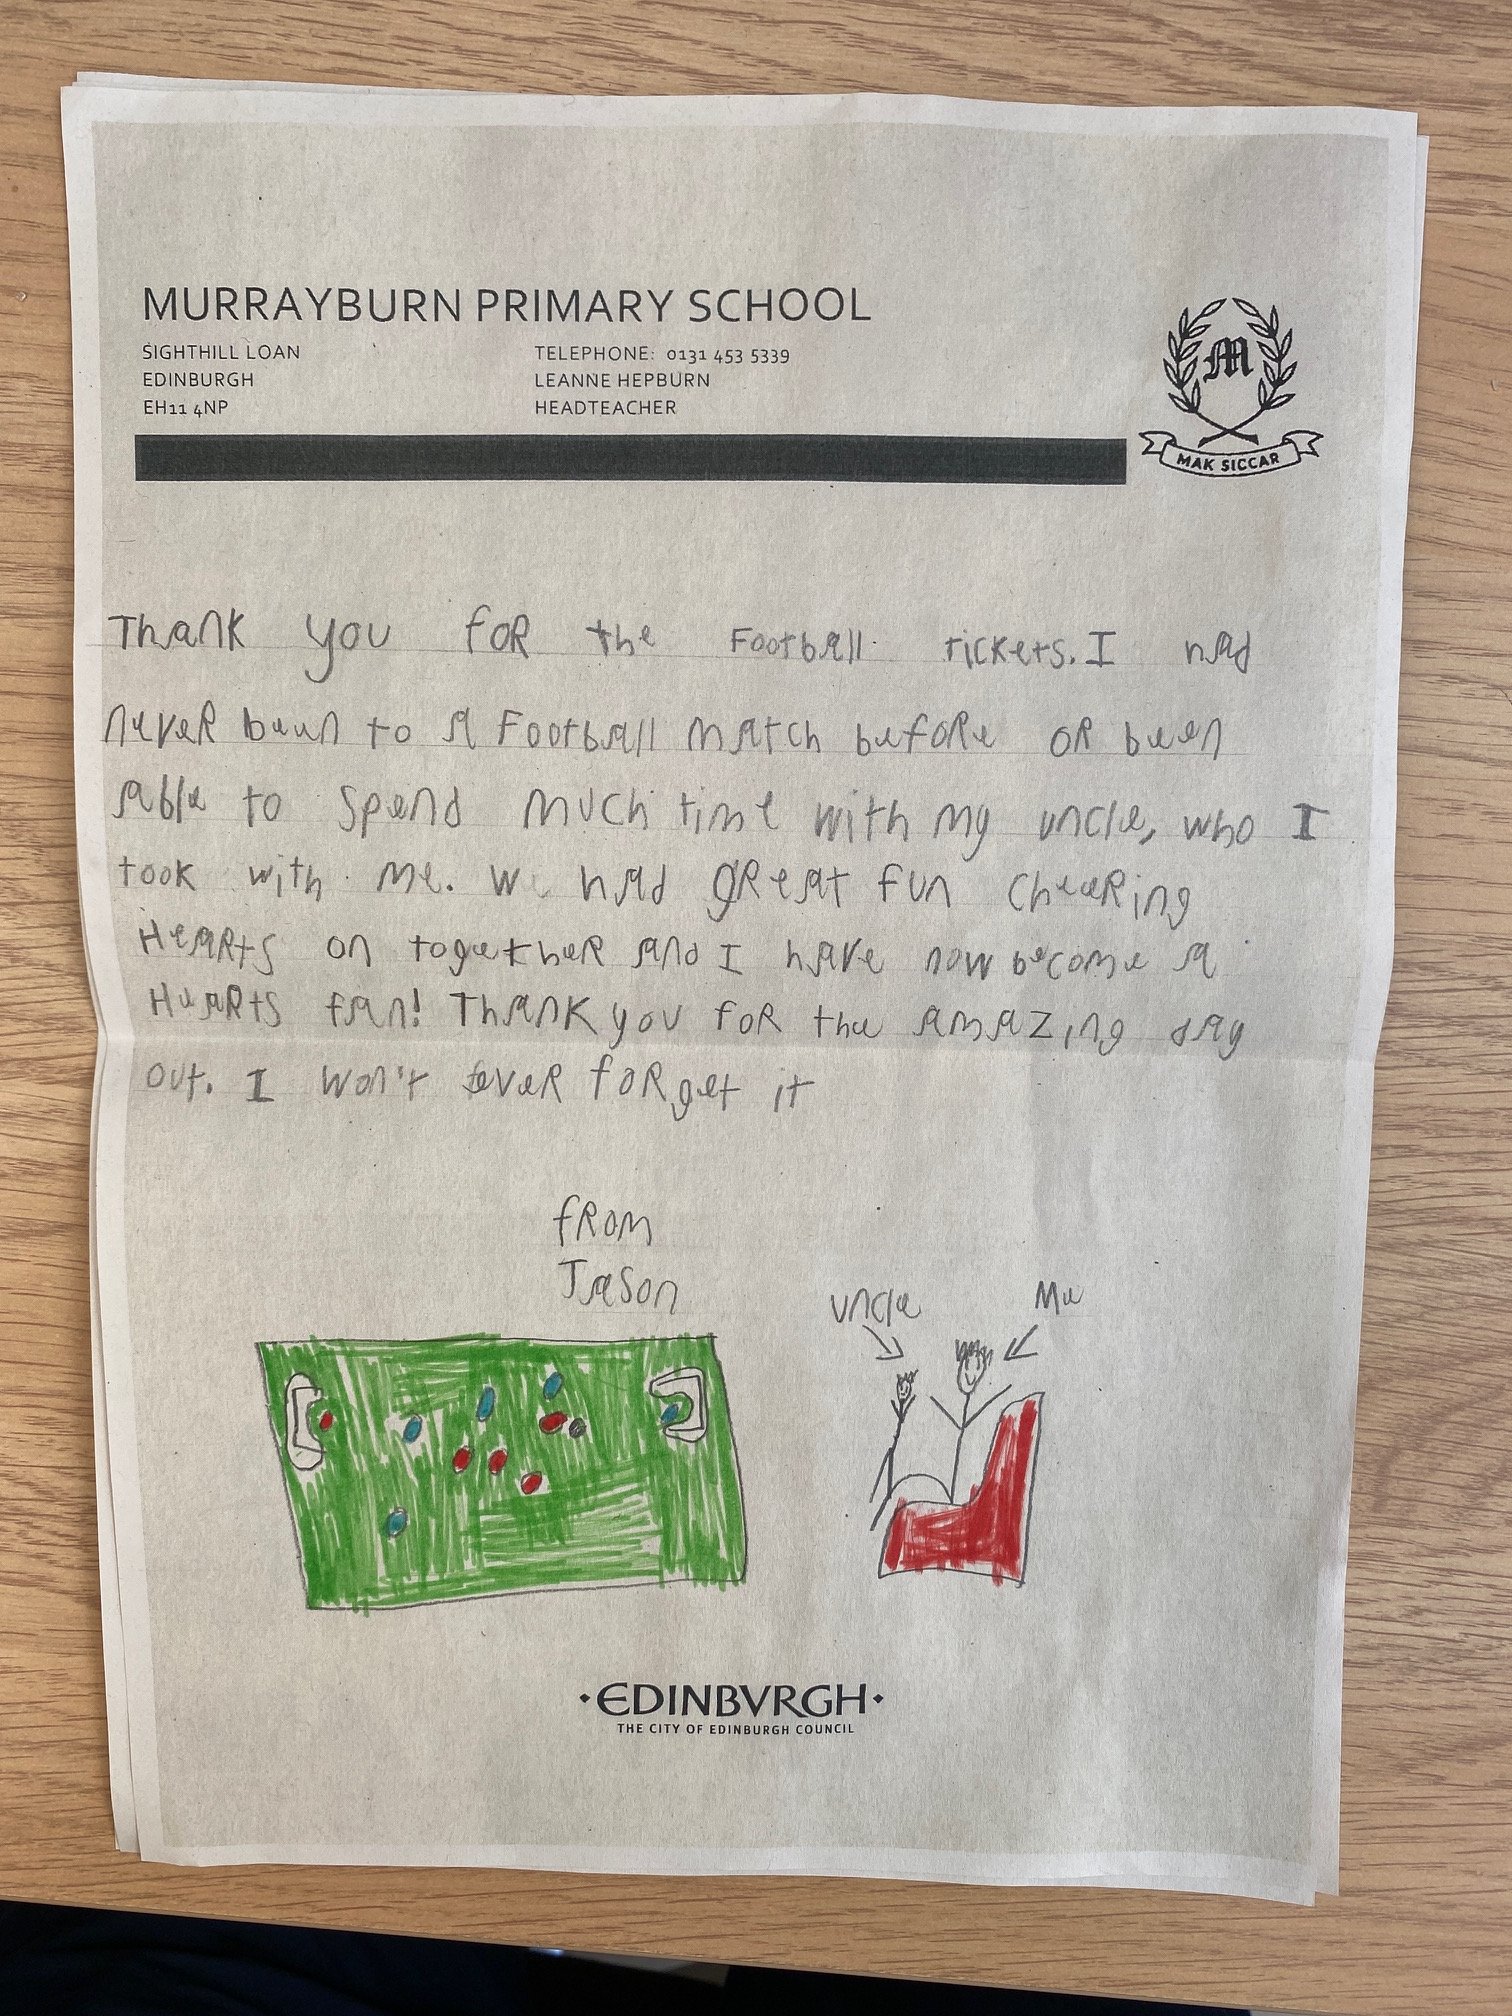 MURRAYBURN PRIMARY SCHOOL
SIGHTHILL LOAN
EDINBURGH
EH11 4NP
TELEPHONE: 0131 453 5339
LEANNE HEPBURN
HEADTEACHER
M
MAK SICCAR
Thank you for the Football tickets. I had
never been to a Football match before or been
able to spend much time with my uncle, who I
took with me. We had great fun cheering
Hearts on together and I have now become a
Hearts fan! Thank you for the amazing day
out. I won't ever forget it
from
Jason
uncle
Me
EDINBVRGH
THE CITY OF EDINBURGH COUNCIL